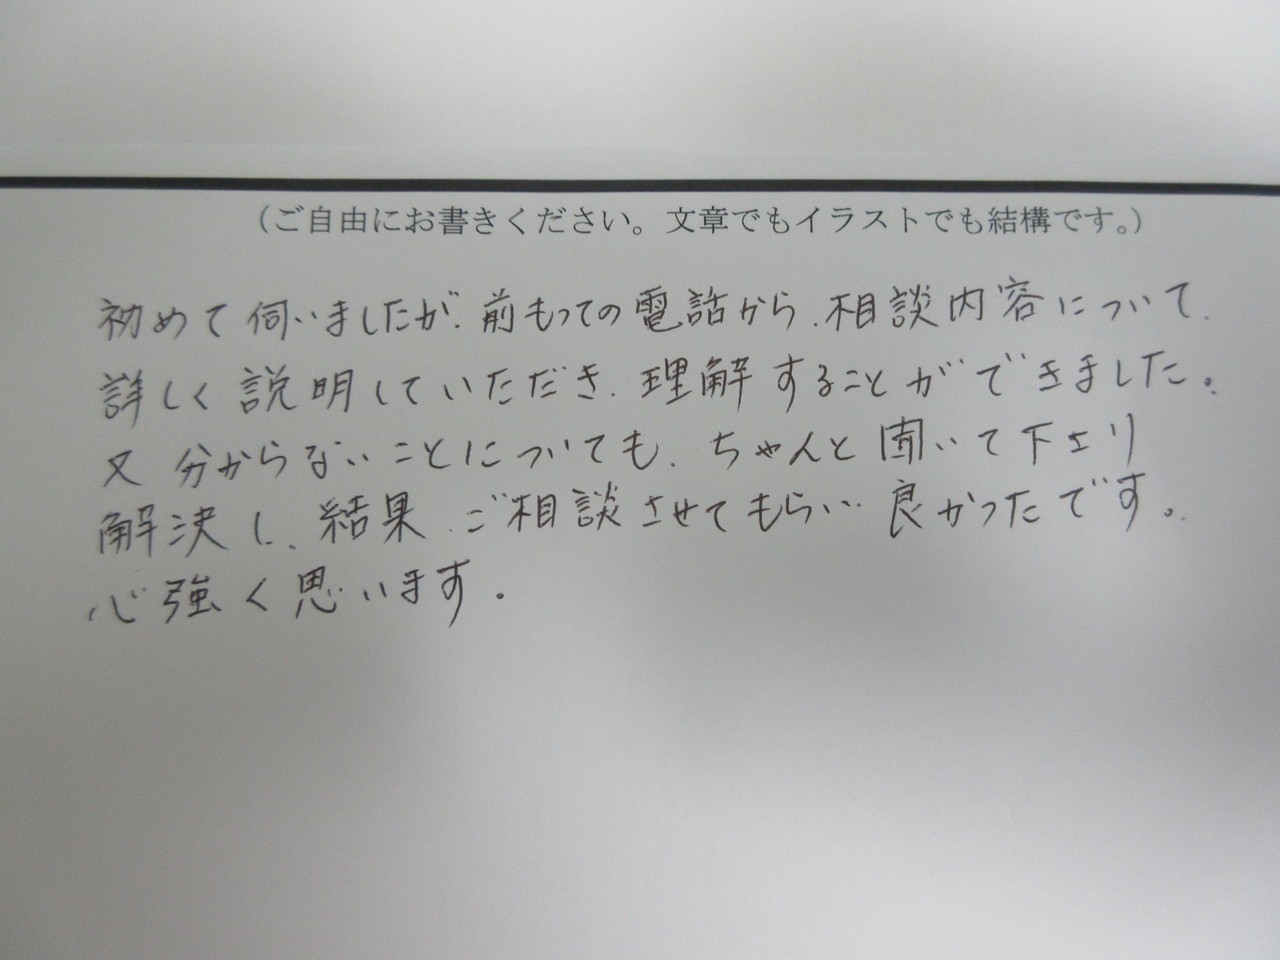 （ご自由にお書きください。文章でもイラストでも結構です。）
初めて伺いましたが、前もっての電話から、相談内容について、
詳しく説明していただき、理解することができました。
又 分からないことについても、ちゃんと聞いて下さり
解決し、結果、ご相談させてもらい、良かったです。
心強く思います。